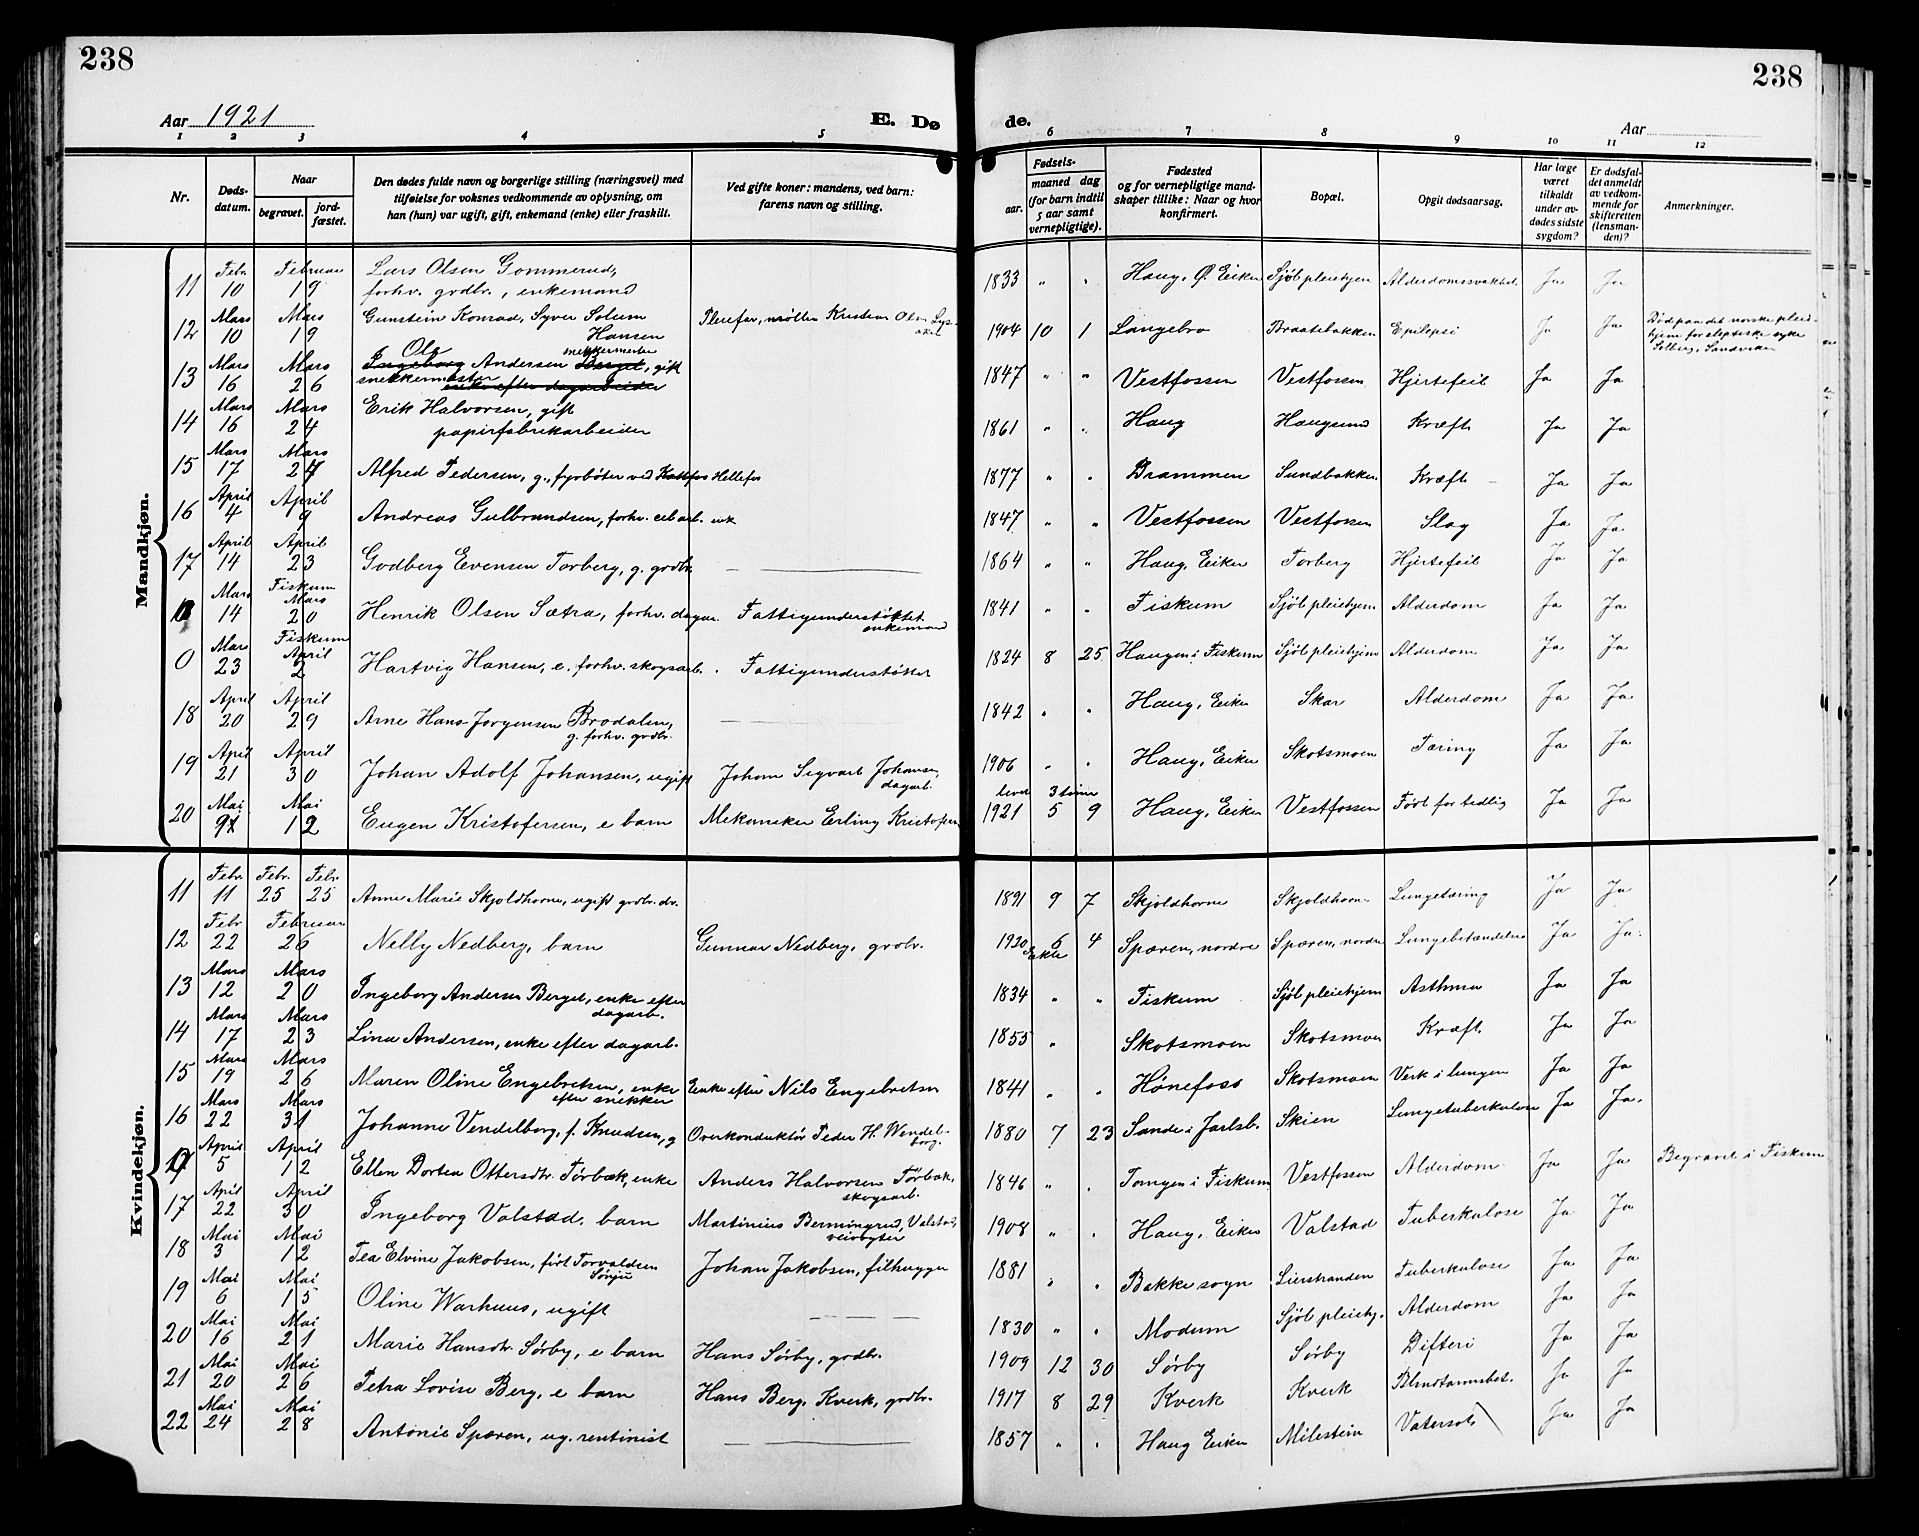 238
238
Aar 1921
E. Dø
de.
Aar
1 2 3 4 5 6 7 8 9 10 11 12
Nr.
Døds-
datum.
Naar
begravet.
jord-
fæstet.
Den dødes fulde navn og borgerlige stilling (næringsvei) med
tilføielse for voksnes vedkommende av oplysning, om
han (hun) var ugift, gift, enkemand (enke) eller fraskilt.
Ved gifte koner: mandens, ved barn:
farens navn og stilling.
Fødsels-
aar. maaned dag
(for barn indtil
5 aar samt
vernepligtige).
Fødested
og for vernepligtige mand-
skaper tillike: Naar og hvor
konfirmert.
Bopæl.
Opgit dødsaarsag.
Har læge
været
tilkaldt
under av-
dødes sidste
sygdom?
Er dødsfal-
det anmeldt
av vedkom-
mende for
skifteretten
(lensman-
den)?
Anmerkninger.
Mandkjøn.
11 Febr 10 Februar 19 Lars Olsen Gommerud, forhv. grdbr., enkemand 1833 " " Haug, Ø. Eiker Sjøl pleiehjem Alderdomssvakhet Ja Ja
12 Mars 10 Mars 19 Gunstein Konrad, Syver Solum Hansen Pleiefar, møller Kristian Olsen 1904 10 1 Langebro Braatebakken Epilepsi Ja Ja Død paa det norske pleiehjem for eleptiske syke Solberg, Sandviken
13 Mars 16 Mars 26 Ole Andersen snekkermester, gift snekkermester 1847 " " Vestfossen Vestfossen Hjertefeil Ja Ja
14 Mars 16 Mars 24 Erik Halvorsen, gift papirfabrikarbeider 1861 " " Haug Haugsund Kræft Ja Ja
15 Mars 17 Mars 24 Alfred Pedersen, g., fyrbøter ved Hellefos 1877 " " Drammen Sundbakken Kræft Ja Ja
16 April 4 April 9 Andreas Gulbrandsen, forhv. cel arb. enk 1847 " " Vestfossen Vestfossen Slag Ja Ja
17 April 14 April 23 Godberg Evensen Torberg, g. grdbr. 1864 " " Haug, Eiker Torberg Hjertefeil Ja Ja
0 Mars 14 Fiskum Mars 20 Henrik Olsen Sætra, forhv. dagar. Fattigunderstøttet enkemand 1841 " " Fiskum Sjøl pleiehjem Alderdom Ja Ja
0 Mars 23 Fiskum April 2 Hartvig Hansen, e. forhv. skogsarb. Fattigunderstøttet 1824 8 25 Haugen i Fiskum Sjøl pleiehjem Alderdom Ja Ja
18 April 20 April 29 Arne Hans Jørgensen Brodalen, g. forhv. grdbr. 1842 " " Haug, Eiker Skar Alderdom Ja Ja
19 April 21 April 30 Johan Adolf Johansen, ugift Johan Sigvart Johansen, dagarb. 1906 " " Haug, Eiker Skotsmoen Tæring Ja Ja
20 Mai 9 Mai 12 Eugen Kristofersen, e barn Mekaniker Erling Kristofersen levet 3 timer 1921 5 9 Haug, Eiker Vestfossen Født for tidlig Ja Ja
Kvindekjøn.
11 Febr 11 Febr. 25 Febr 25 Anne Marie Skjoldhorne, ugift grdbr. dr. 1891 9 7 Skjoldhorne Skjoldhorne Lungetæring Ja Ja
12 Febr 22 Februar 26 Nelly Nedberg, barn Gunnar Nedberg, grdbr. 1920 6 4 Spæren, nordre Spæren, nordre Lungebetændelse Ja Ja
13 Mars 12 Mars 20 Ingeborg Andersen Berget, enke efter dagarb. 1834 " " Fiskum Sjøl pleiehjem Asthma Ja Ja
14 Mars 17 Mars 23 Lina Andersen, enke efter dagarb. 1855 " Skotsmoen Skotsmoen Kræft Ja Ja
15 Mars 19 Mars 26 Maren Oline Engebretsen, enke efter snekker Enke efter Nils Engebretsen 1841 " " Hønefoss Skotsmoen Verk i lungen Ja Ja
16 Mars 22 Mars 31 Johanne Vendelborg, f. Knudsen, g Overkonduktør Peder H. Wendelborg. 1880 7 23 Sande i Jarlsb. Skien Lungetuberkulose Ja Ja
0 April 5 April 12 Ellen Dortea Ottersdtr. Tørbæk, enke Anders Halvorsen Tørbæk, skogsarb. 1846 " " Tomgen i Fiskum Vestfossen Alderdom Ja Ja Begravet i Fiskum
17 April 22 April 30 Ingeborg Valstad, barn Martinius Bermingrud, Valstad, veivogter 1908 " " Haug, Eiker Valstad Tuberkulose Ja Ja
18 Mai 3 Mai 12 Tea Elvine Jakobsen, født Torvaldsen Sønju Johan Jakobsen, filhugger 1881 " " Bakke sogn Lierstranden Tuberkulose Ja Ja
19 Mai 6 Mai 15 Oline Warhuus, ugift 1830 " " Modum Sjøl pleiehj. Alderdom Ja Ja
20 Mai 16 Mai 21 Marie Hansdtr. Sørby, e barn Hans Sørby, godbr. 1909 12 30 Sørby Sørby Difteri Ja Ja
21 Mai 20 Mai 26 Petra Lovise Berg, e barn Hans Berg, Kverk, godbr. 1917 8 29 Kverk Kverk Blindtarmsbet. Ja Ja
22 Mai 24 Mai 28 Antonie Spæren, ug. rentinist 1857 " " Haug Eiker Milestein Vatersot Ja Ja